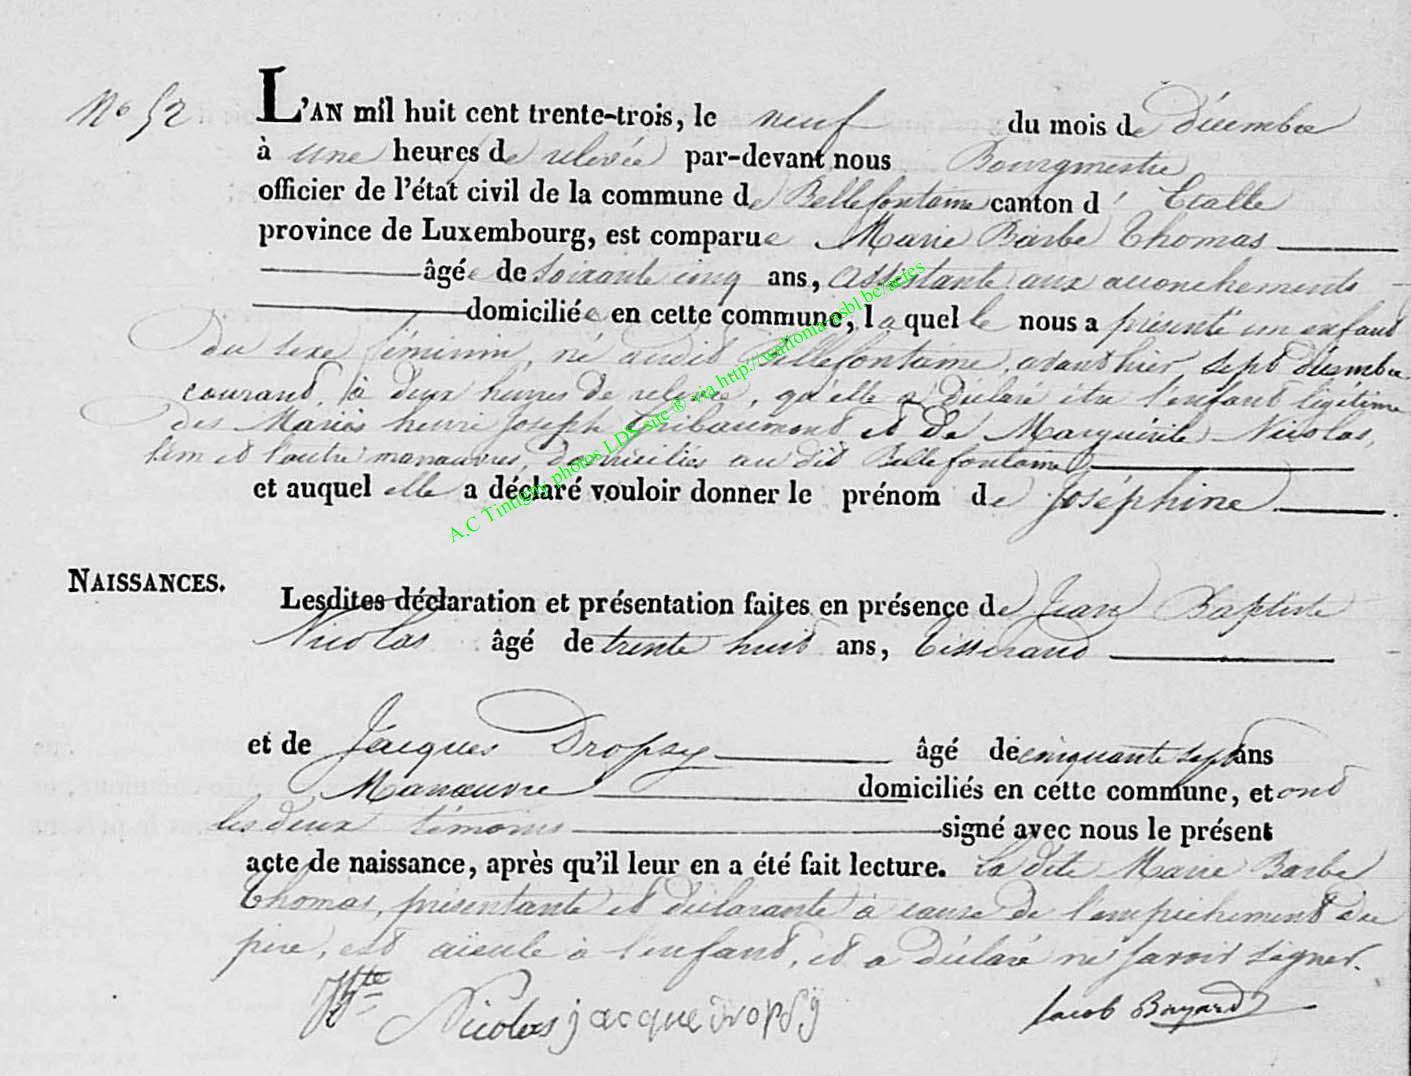 No 52
L'AN mil huit cent trente-trois, le neuf du mois de décembre
à une heures de relevée par-devant nous Bourgmestre
officier de l'état civil de la commune de Bellefontaine canton d' Etalle
province de Luxembourg, est comparue Marie Barbe Thomas
âgée de soixante cinq ans, assistante aux accouchements
domiciliée en cette commune, laquelle nous a présenté un enfant
du sexe féminin, né audit Bellefontaine, avant hier, sept décembre
courant, à deux heures de relevée, qu'elle a déclaré être l'enfant légitime
des Mariés henri Joseph Thibaumont et de Marguérite Nicolas,
l'un et l'autre manœuvres, domiciliés au dit Bellefontaine,
et auquel elle a déclaré vouloir donner le prénom de Joséphine
NAISSANCES.
Lesdites déclaration et présentation faites en présence de Jean Baptiste
Nicolas âgé de trente huit ans, tisserand
et de Jacques Dropsy âgé de cinquante sept ans
Manœuvre domiciliés en cette commune, et ont
les deux témoins signé avec nous le présent
acte de naissance, après qu'il leur en a été fait lecture. La dite Marie Barbe
Thomas, présentante et déclarante à cause de l'empêchement du
père, est aïeule à l'enfant, et a déclaré ne savoir signer.
Nicolas jacque dropsÿ Jacob Bayard
A.C Tintigny photos LDS site ® via http://wallonia-asbl.be/actes